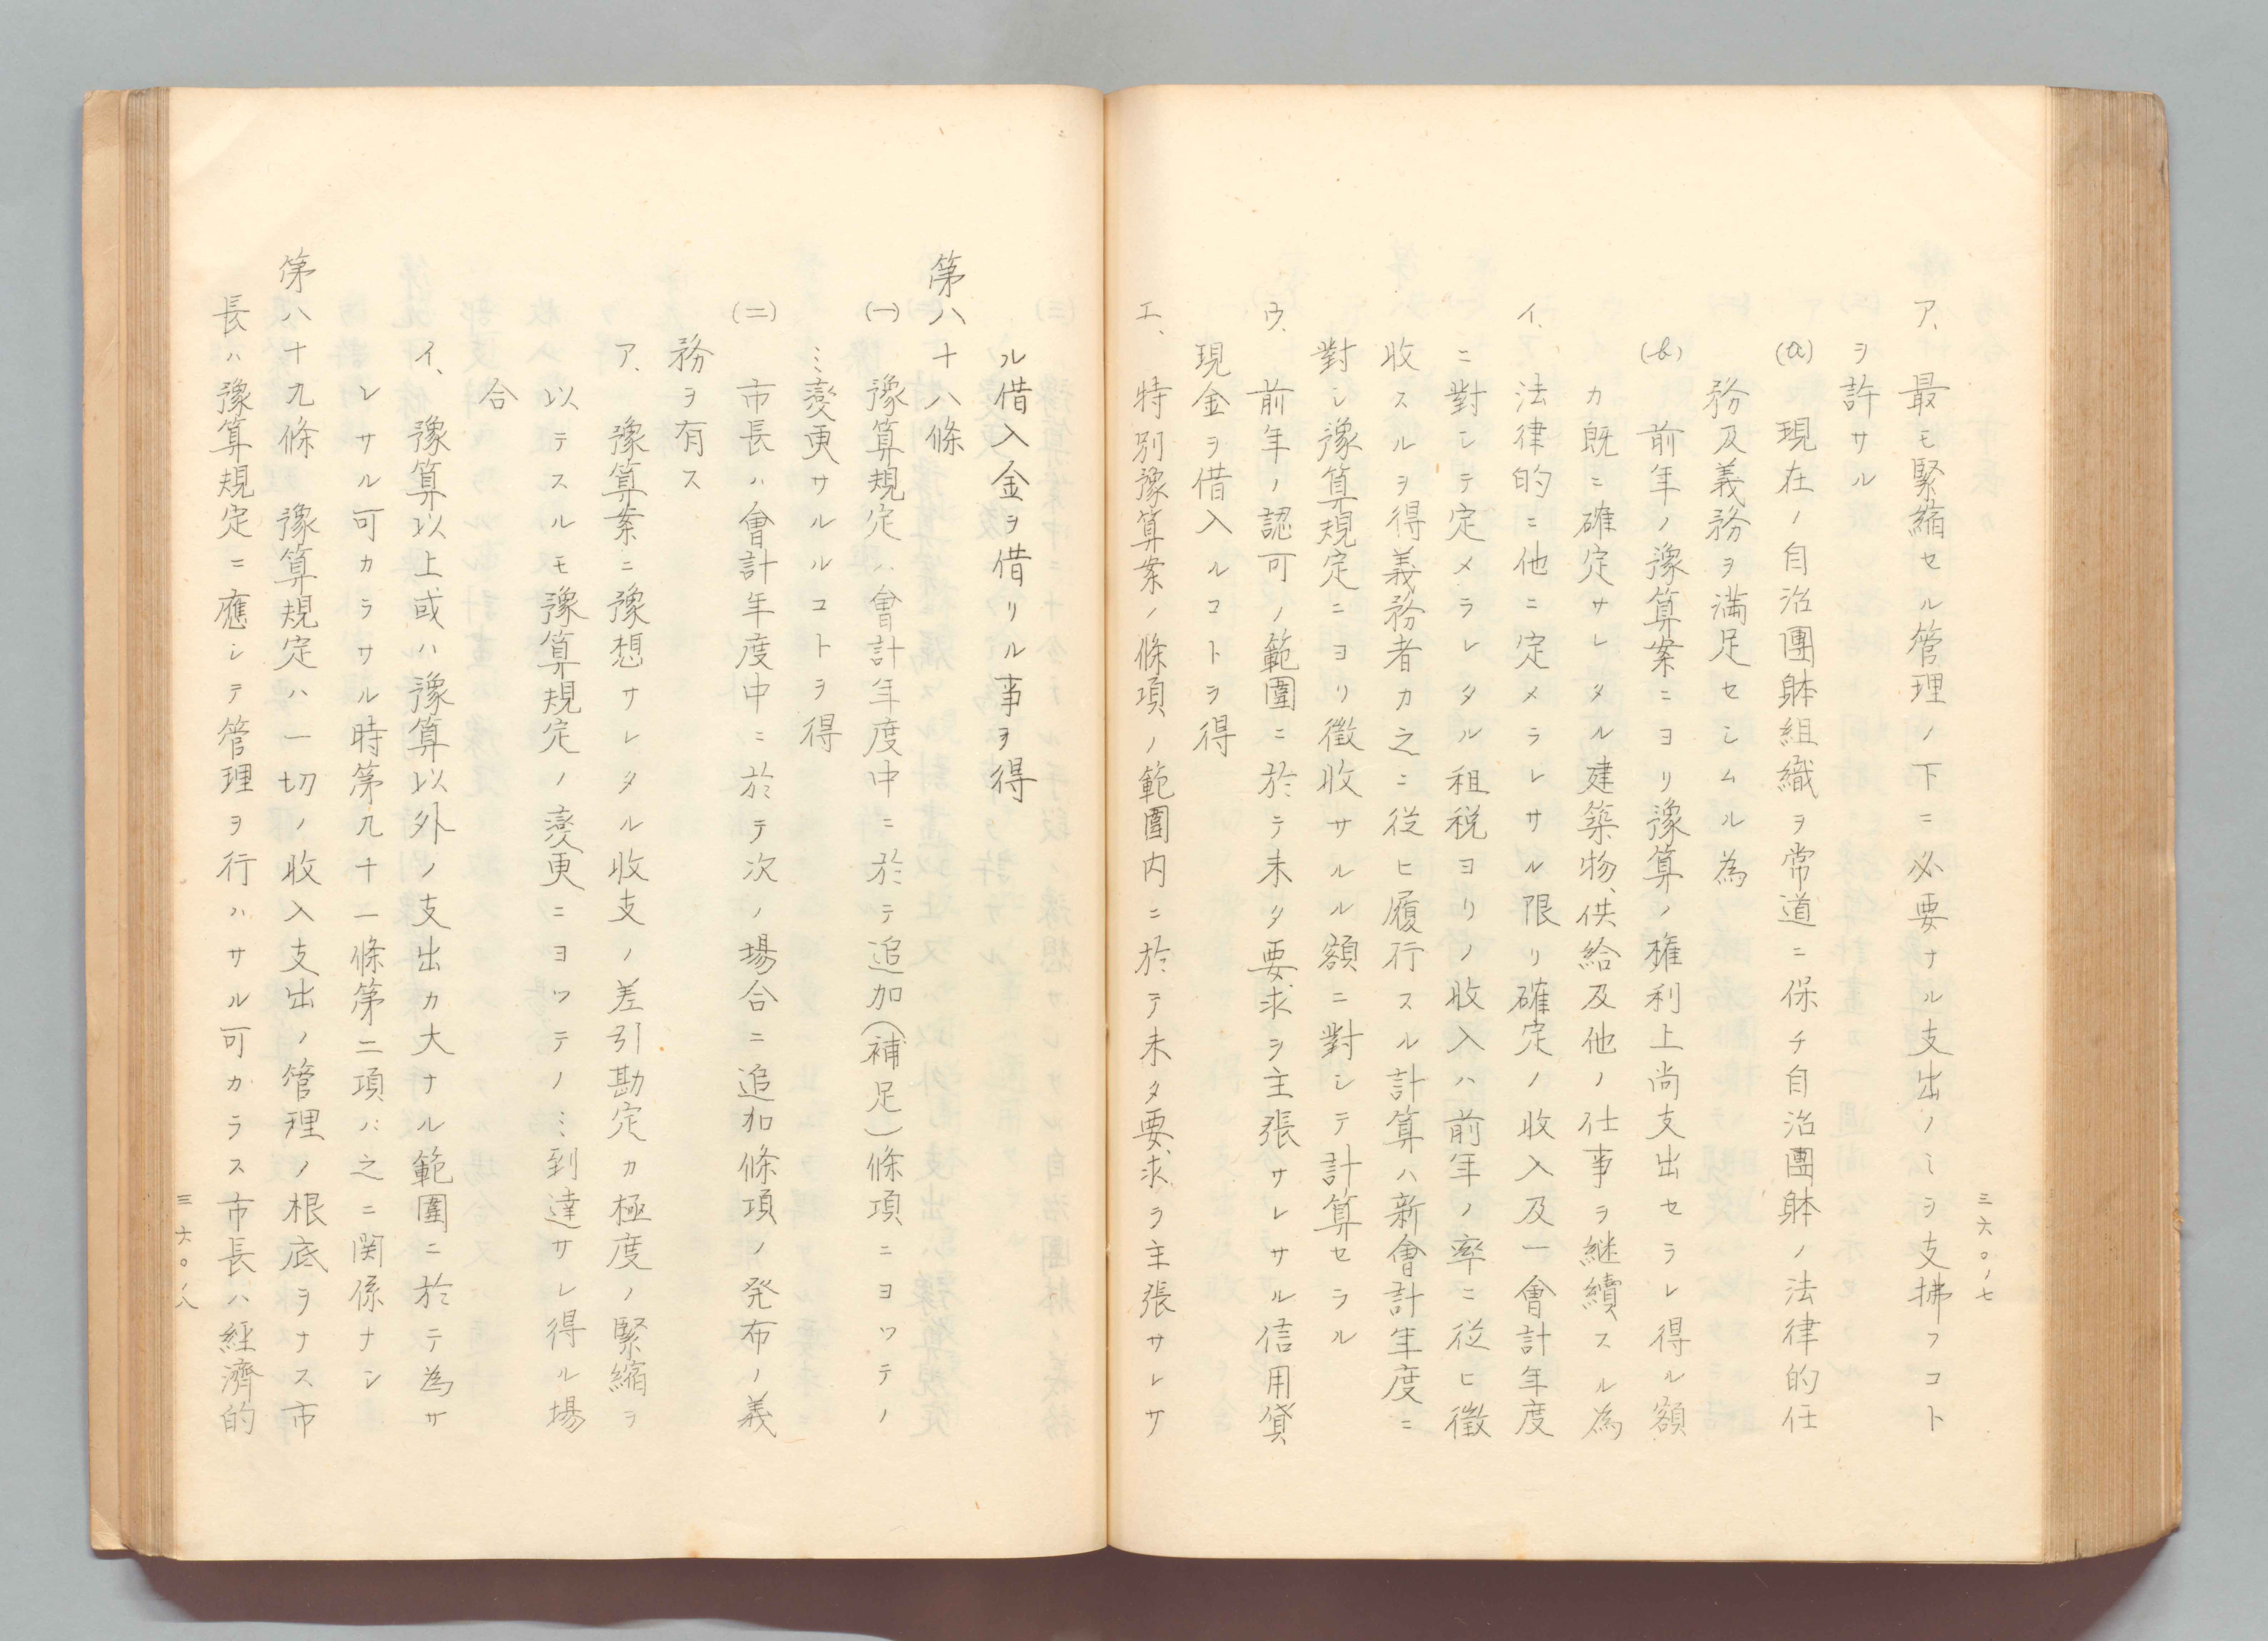 三六〇ノ七
ア、最モ緊縮セル管理ノ下ニ必要ナル支出ノミヲ支拂フコト
ヲ許サル
(a) 現在ノ自治團躰組織ヲ常道ニ保チ自治團躰ノ法律的任
務及義務ヲ満足セシムル為
(b) 前年ノ豫算案ニヨリ豫算ノ権利上尚支出セラレ得ル額
カ既ニ確定サレタル建築物、供給及他ノ仕事ヲ継續スル為
イ、法律的ニ他ニ定メラレサル限リ確定ノ收入及一會計年度
ニ對シテ定メラレタル租税ヨリノ收入ハ前年ノ率ニ従ヒ徴
收スルヲ得義務者カ之ニ従ヒ履行スル計算ハ新會計年度ニ
對シ豫算規定ニヨリ徴收サルル額ニ對シテ計算セラル
ウ、前年ノ認可ノ範圍ニ於テ未タ要求ヲ主張サレサル信用貸
現金ヲ借入ルコトヲ得
エ、特別豫算案ノ條項ノ範圍内ニ於テ未タ要求ヲ主張サレサ
ル借入金ヲ借リル事ヲ得
第八十八條
(一) 豫算規定ハ會計年度中ニ於テ追加(補足)條項ニヨツテノ
ミ変更サルルコトヲ得
(二) 市長ハ會計年度中ニ於テ次ノ場合ニ追加條項ノ発布ノ義
務ヲ有ス
ア、豫算案ニ豫想サレタル收支ノ差引勘定カ極度ノ緊縮ヲ
以テスルモ豫算規定ノ変更ニヨツテノミ到達サレ得ル場
合
イ、豫算以上或ハ豫算以外ノ支出カ大ナル範圍ニ於テ為サ
レサル可カラサル時第九十一條第二項ハ之ニ関係ナシ
第八十九條 豫算規定ハ一切ノ收入支出ノ管理ノ根底ヲナス市
長ハ豫算規定ニ應シテ管理ヲ行ハサル可カラス市長ハ経濟的
三六〇ノ八